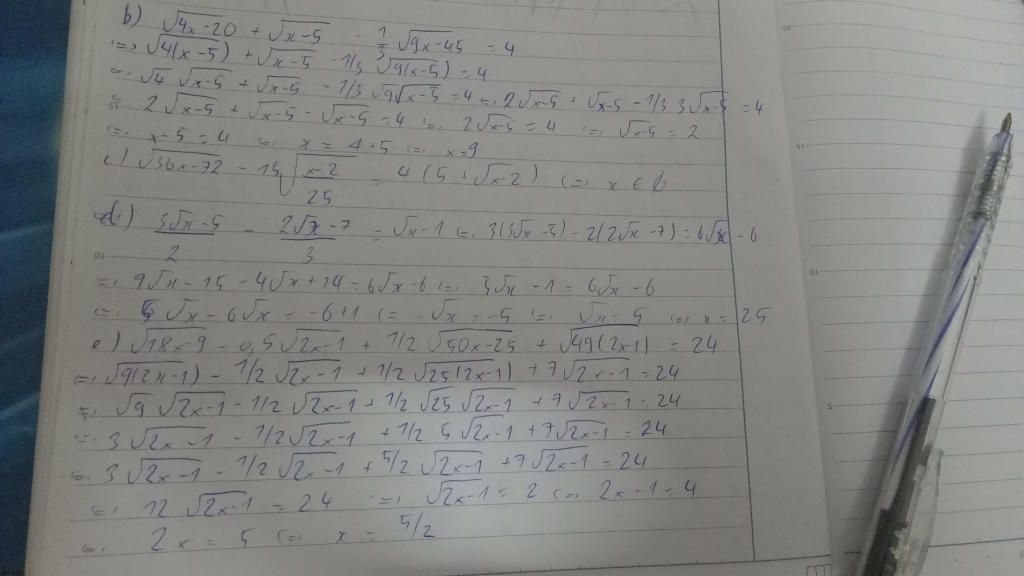 b) √4x-20 + √x-5 - 1/3 √9x-45 = 4
<=> √4(x-5) + √x-5 - 1/3 √9(x-5) = 4
<=> √4 √x-5 + √x-5 - 1/3 √9 √x-5 = 4 <=> 2√x-5 + √x-5 - 1/3 3√x-5 = 4
<=> 2√x-5 + √x-5 - √x-5 = 4 <=> 2√x-5 = 4 <=> √x-5 = 2
<=> x-5 = 4 <=> x = 4+5 <=> x = 9
c) √36x-72 - 15√x-2/25 = 4(5 + √x-2) <=> x ∈ ∅
d) 3√x-5/2 - 2√x-7/3 = √x-1 <=> 3(3√x-5) - 2(2√x-7) = 6√x - 6
<=> 9√x-15 - 4√x+14 = 6√x-6 <=> 5√x - 1 = 6√x - 6
<=> 5√x - 6√x = -6+1 <=> -√x = -5 <=> √x = 5 <=> x = 25
e) √18x-9 - 0,5√2x-1 + 1/2 √50x-25 + √49(2x-1) = 24
<=> √9(2x-1) - 1/2 √2x-1 + 1/2 √25(2x-1) + 7√2x-1 = 24
<=> √9 √2x-1 - 1/2 √2x-1 + 1/2 √25 √2x-1 + 7√2x-1 = 24
<=> 3√2x-1 - 1/2 √2x-1 + 1/2 5√2x-1 + 7√2x-1 = 24
<=> 3√2x-1 - 1/2 √2x-1 + 5/2 √2x-1 + 7√2x-1 = 24
<=> 12√2x-1 = 24 <=> √2x-1 = 2 <=> 2x-1 = 4
<=> 2x = 5 <=> x = 5/2